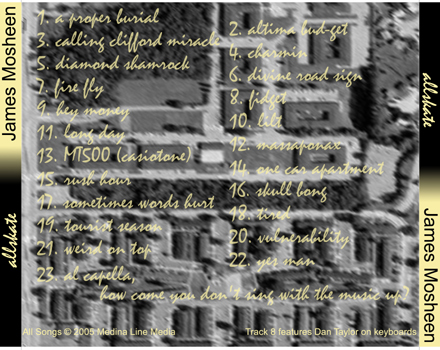 James Mosheen
allskate
1. a proper burial
2. altima bud-get
3. calling clifford miracle
4. charmin
5. diamond shamrock
6. divine road sign
7. fire fly
8. fidget
9. hey money
10. lilt
11. long day
12. massaponax
13. MTS00 (casiotone)
14. one car apartment
15. rush hour
16. skull bong
17. sometimes words hurt
18. tired
19. tourist season
20. vulnerability
21. weird on top
22. yes man
23. al capella,
how come you don't sing with the music up?
All Songs © 2005 Medina Line Media
Track 8 features Dan Taylor on keyboards
allskate
James Mosheen